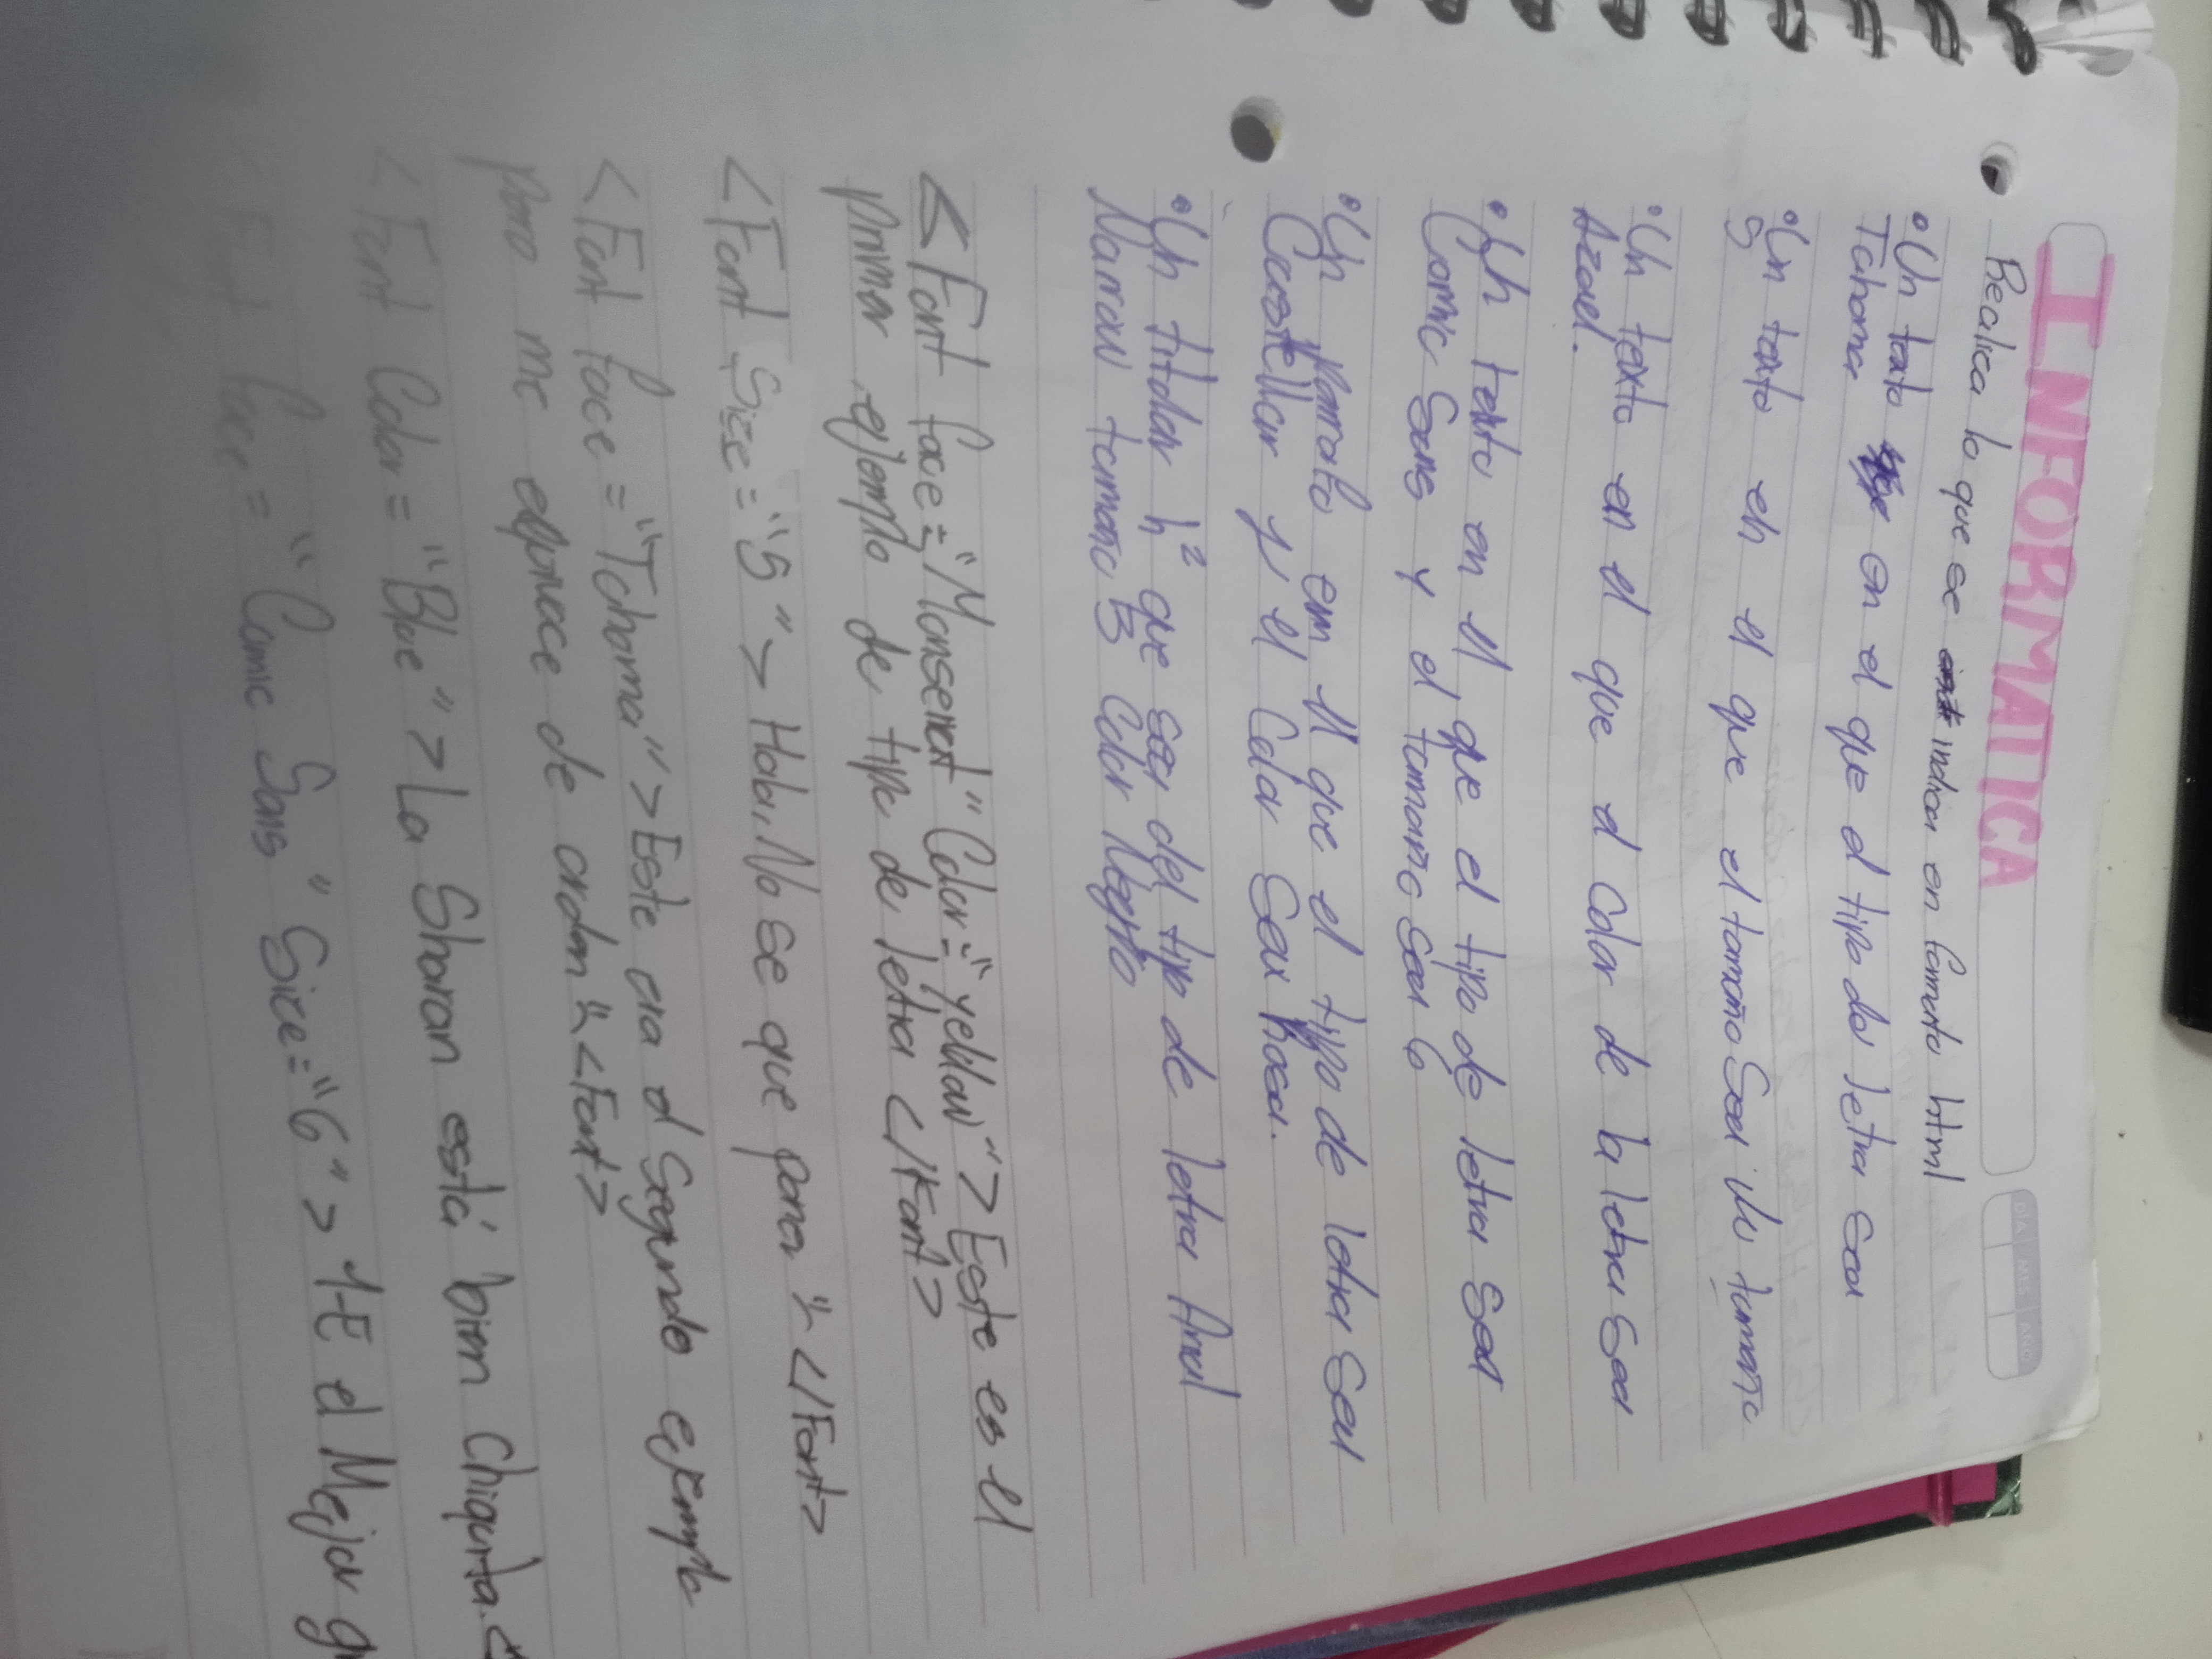 INFORMATICA
DIA MES AÑO
Realica lo que se indica en formato html
• Un texto en el que el tipo de letra sea
Tahoma
• Un texto en el que el tamaño sea de tamaño
5
• Un texto en el que el color de la letra sea
Azul.
• Un texto en el que el tipo de letra sea
Comic Sans y el tamaño sea 6
• Un parrafo em el que el tipo de letra sea
Castellar y el color sea Rosa.
• Un titular h2 que sea del tipo de letra Arial
tamaño 3 Color Negro
<Font face="Monserrat" Color="yellow"> Este es el
primer ejemplo de tipo de letra </Font>
<Font Size="5"> Hola, No se que poner </Font>
<Font face="Tahoma"> Este era el Segundo ejemplo
pero me equivoce de orden <Font>
<Font Color="Blue"> La Sharan está bien Chiquita.<
<Font face="Comic Sans" Size="6"> 1-E el Mejor g